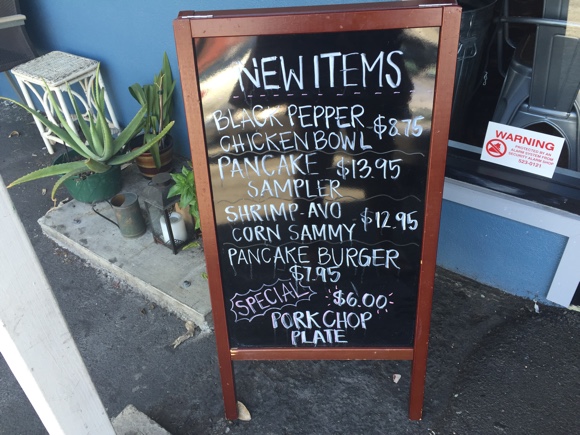 NEW ITEMS
BLACK PEPPER
CHICKEN BOWL $8.75
PANCAKE $13.95
SAMPLER
SHRIMP-AVO
CORN SAMMY $12.95
PANCAKE BURGER
$7.95
SPECIAL $6.00
PORK CHOP
PLATE
WARNING
PROTECTED BY AN
ALARM SYSTEM FROM
SECURITY ALARM SHOP
523-0131